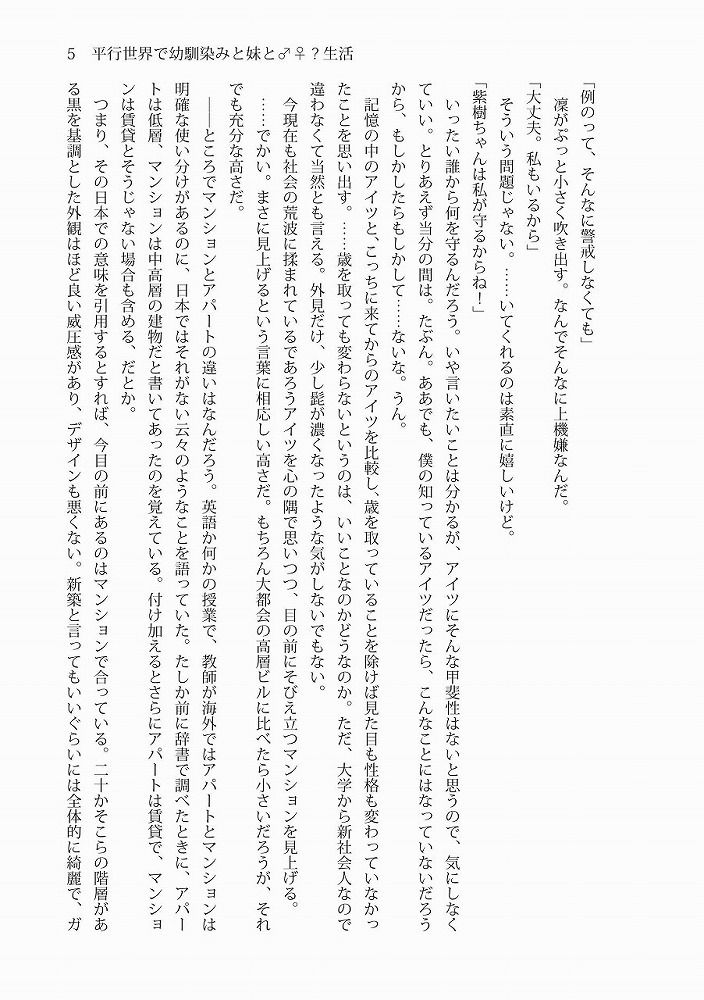 5　平行世界で幼馴染みと妹と♂♀？生活
「例のって、そんなに警戒しなくても」
　凜がぷっと小さく吹き出す。なんでそんなに上機嫌なんだ。
「大丈夫。私もいるから」
　そういう問題じゃない。……いてくれるのは素直に嬉しいけど。
「紫樹ちゃんは私が守るからね！」
　いったい誰から何を守るんだろう。いや言いたいことは分かるが、アイツにそんな甲斐性はないと思うので、気にしなく
ていい。とりあえず当分の間は。たぶん。ああでも、僕の知っているアイツだったら、こんなことにはなっていないだろう
から、もしかしたらもしかして……ないな。うん。
　記憶の中のアイツと、こっちに来てからのアイツを比較し、歳を取っていることを除けば見た目も性格も変わっていなかっ
たことを思い出す。……歳を取っても変わらないというのは、いいことなのかどうなのか。ただ、大学から新社会人なので
違わなくて当然とも言える。外見だけ、少し髭が濃くなったような気がしないでもない。
　今現在も社会の荒波に揉まれているであろうアイツを心の隅で思いつつ、目の前にそびえ立つマンションを見上げる。
　……でかい。まさに見上げるという言葉に相応しい高さだ。もちろん大都会の高層ビルに比べたら小さいだろうが、それ
でも充分な高さだ。
　――ところでマンションとアパートの違いはなんだろう。英語か何かの授業で、教師が海外ではアパートとマンションは
明確な使い分けがあるのに、日本ではそれがない云々のようなことを語っていた。たしか前に辞書で調べたときに、アパー
トは低層、マンションは中高層の建物だと書いてあったのを覚えている。付け加えるとさらにアパートは賃貸で、マンショ
ンは賃貸とそうじゃない場合も含める、だとか。
　つまり、その日本での意味を引用するとすれば、今目の前にあるのはマンションで合っている。二十かそこらの階層があ
る黒を基調とした外観はほど良い威圧感があり、デザインも悪くない。新築と言ってもいいぐらいには全体的に綺麗で、ガ